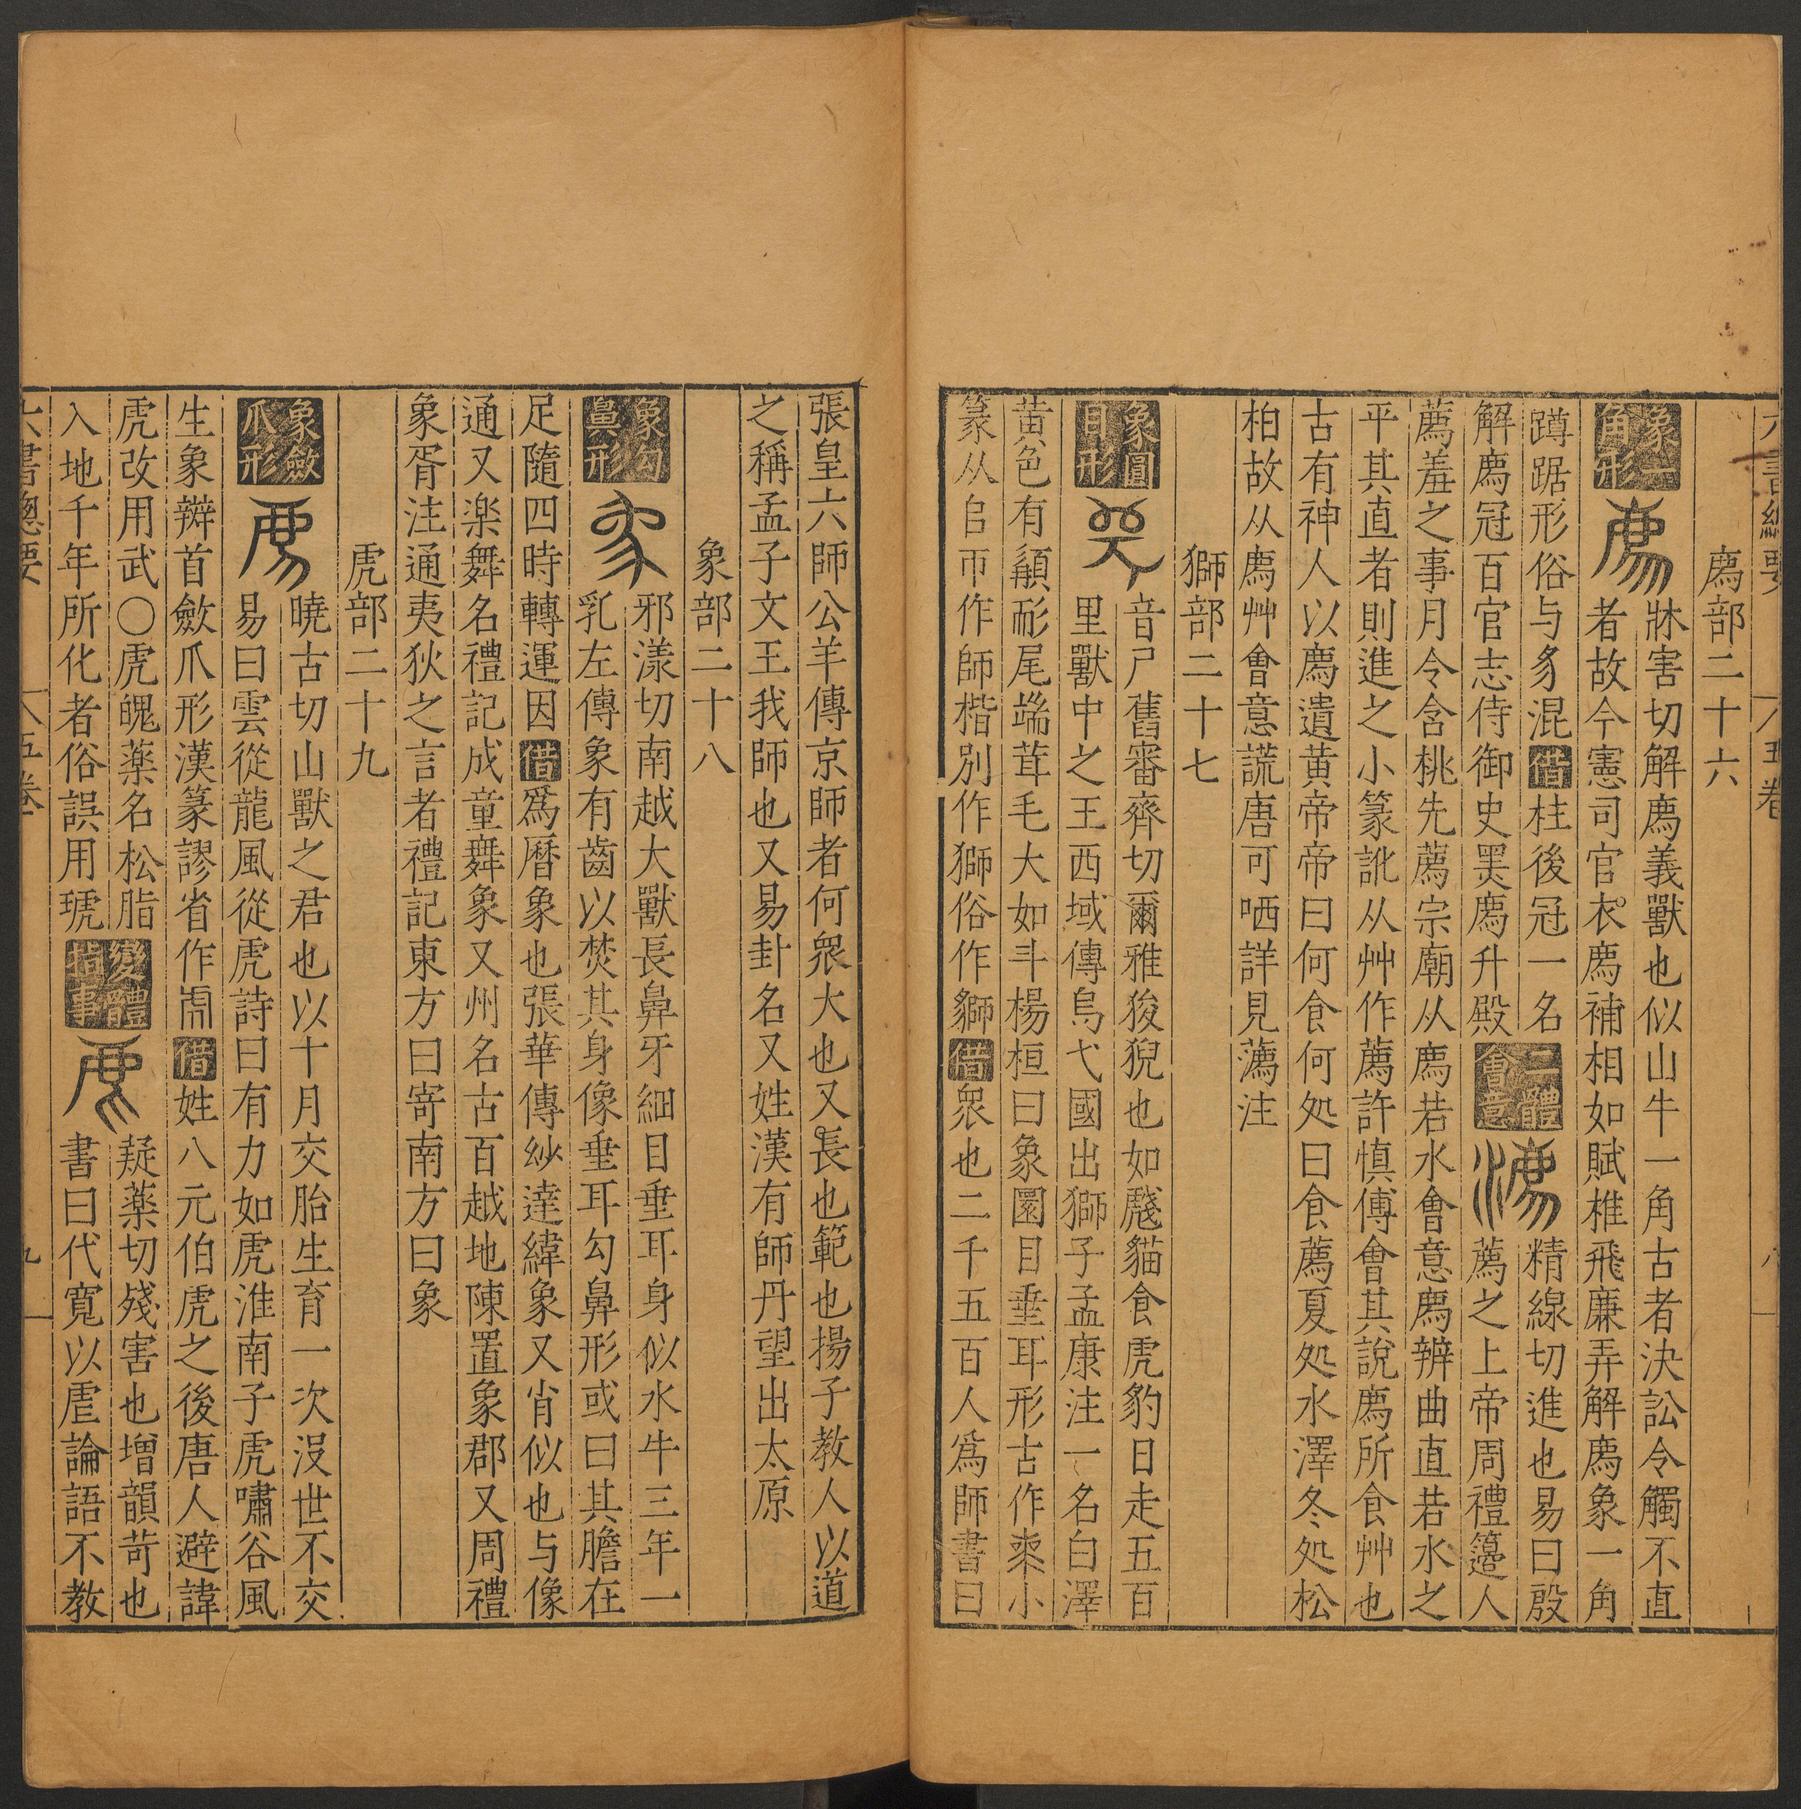 六書總要 五卷 八
廌部二十六
象一角形 廌 牀害切解廌義獸也似山牛一角古者決訟令觸不直
者故今憲司官衣廌補相如賦椎飛廉弄解廌象一角
蹲踞形俗与豸混借柱後冠一名
解廌冠百官志侍御史冠廌升殿 二體會意 精線切進也易曰殷
薦之上帝周禮籩人
薦羞之事月令含桃先薦宗廟从廌若水會意廌辨曲直若水之
平其直者則進之小篆訛从艸作薦許慎傅會其說廌所食艸也
古有神人以廌遺黃帝帝曰何食何処曰食薦夏処水澤冬処松
柏故从廌艸會意謊唐可哂詳見瀳注
獅部二十七
象圓目形 音尸舊審齊切爾雅狻猊也如虦貓食虎豹日走五百
里獸中之王西域傳烏弋國出獅子孟康注一名白澤
黃色有顢耏尾端茸毛大如斗楊桓曰象圜目垂耳形古作 小
篆从𠂤帀作師楷別作獅俗作䝜借眾也二千五百人爲師書曰
張皇六師公羊傳京師者何眾大也又長也範也揚子教人以道
之稱孟子文王我師也又易卦名又姓漢有師丹望出太原
象部二十八
象勾鼻形 象 邪漾切南越大獸長鼻牙細目垂耳身似水牛三年一
乳左傳象有齒以焚其身像垂耳勾鼻形或曰其膽在
足隨四時轉運因借爲曆象也張華傳紗達緯象又肖似也与像
通又楽舞名禮記成童舞象又州名古百越地陳置象郡又周禮
象胥注通夷狄之言者禮記東方曰寄南方曰象
虎部二十九
象斂爪形 虎 曉古切山獸之君也以十月交胎生育一次沒世不交
易曰雲從龍風從虎詩曰有力如虎淮南子虎嘯谷風
生象辬首斂爪形漢篆謬省作 借姓八元伯虎之後唐人避諱
虎改用武〇虎魄薬名松脂
入地千年所化者俗誤用琥 變體指事 疑薬切殘害也增韻苛也
書曰代寬以虐論語不教
六書總要 五卷 九